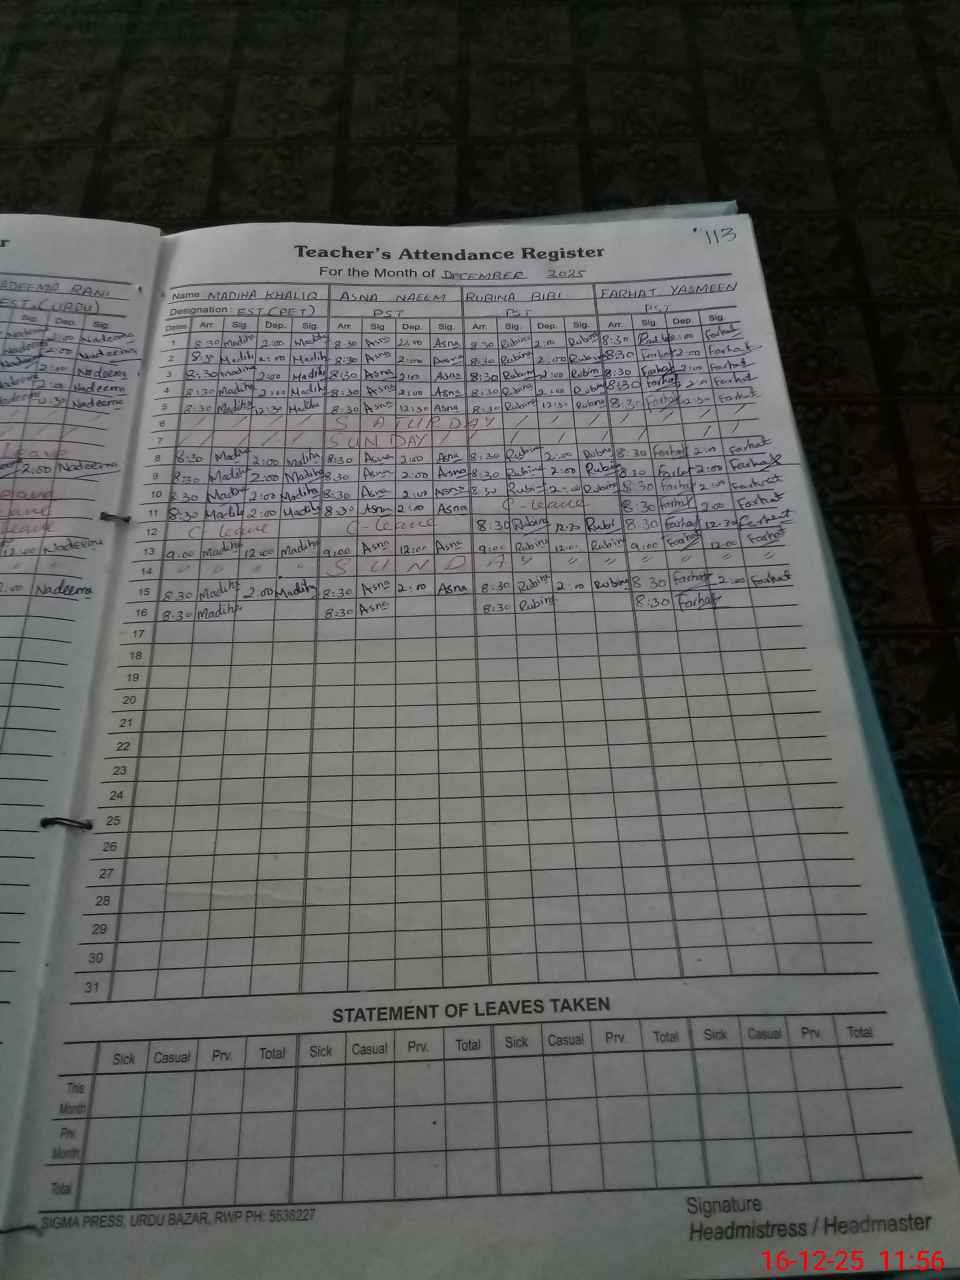 r
Teacher's Attendance Register
113
For the Month of DECEMBER 2025
ADEEMA RANI
EST (URDU)
Sig. Dep. Sig.
Nadeema
Nadeema
2:00 Nadeems
2:00 Nadeema
12:30 Nadeema
Leave
2:00 Nadeema
Leave
Leave
Leave
12:00 Nadeema
" "
2:00 Nadeema
Name MADIHA KHALIQ ASNA NAEEM RUBINA BIBI FARHAT YASMEEN
Designation EST (PET) PST PST PST
Dates Arr. Sig. Dep. Sig. Arr. Sig. Dep. Sig. Arr. Sig. Dep. Sig. Arr. Sig. Dep. Sig.
1 8:30 Madiha 2:00 Madiha 8:30 Asna 2:00 Asna 8:30 Rubina 2:00 Rubina 8:30 2:00 Farhat
2 8:30 Madiha 2:00 Madiha 8:30 Asna 2:00 Asna 8:30 Rubina 2:00 Rubina 8:30 Farhat 2:00 Farhat
3 8:30 Madiha 2:00 Madiha 8:30 Asna 2:00 Asna 8:30 Rubina 2:00 Rubina 8:30 Farhat 2:00 Farhat
4 8:30 Madiha 2:00 Madiha 8:30 Asna 2:00 Asna 8:30 Rubina 2:00 Rubina 8:30 Farhat 2:00 Farhat
5 8:30 Madiha 12:30 Madiha 8:30 Asna 12:30 Asna 8:30 Rubina 12:30 Rubina 8:30 Farhat 12:30 Farhat
6 / / / / SATURDAY / / / / /
7 / / / / SUNDAY / / / / / / / / /
8 8:30 Madiha 2:00 Madiha 8:30 Asna 2:00 Asna 8:30 Rubina 2:00 Rubina 8:30 Farhat 2:00 Farhat
9 8:30 Madiha 2:00 Madiha 8:30 Asna 2:00 Asna 8:30 Rubina 2:00 Rubina 8:30 Farhat 2:00 Farhat
10 8:30 Madiha 2:00 Madiha 8:30 Asna 2:00 Asna 8:30 Rubina 2:00 Rubina 8:30 Farhat 2:00 Farhat
11 8:30 Madiha 2:00 Madiha 8:30 Asna 2:00 Asna C-leave 8:30 Farhat 2:00 Farhat
12 C-leave C-leave 8:30 Rubina 12:30 Rubi 8:30 Farhat 12:30 Farhat
13 9:00 Madiha 12:00 Madiha 9:00 Asna 12:00 Asna 9:00 Rubina 12:00 Rubina 9:00 Farhat 12:00 Farhat
14 " " " " S U N D A Y " " " " " "
15 8:30 Madiha 2:00 Madiha 8:30 Asna 2:00 Asna 8:30 Rubina 2:00 Rubina 8:30 Farhat 2:00 Farhat
16 8:30 Madiha 8:30 Asna 8:30 Rubina 8:30 Farhat
17
18
19
20
21
22
23
24
25
26
27
28
29
30
31
STATEMENT OF LEAVES TAKEN
Sick Casual Prv. Total Sick Casual Prv. Total Sick Casual Prv. Total Sick Casual Prv. Total
This
Month
Prv.
Month
Total
SIGMA PRESS, URDU BAZAR, RWP PH: 5536227
Signature
Headmistress / Headmaster
16-12-25 11:56